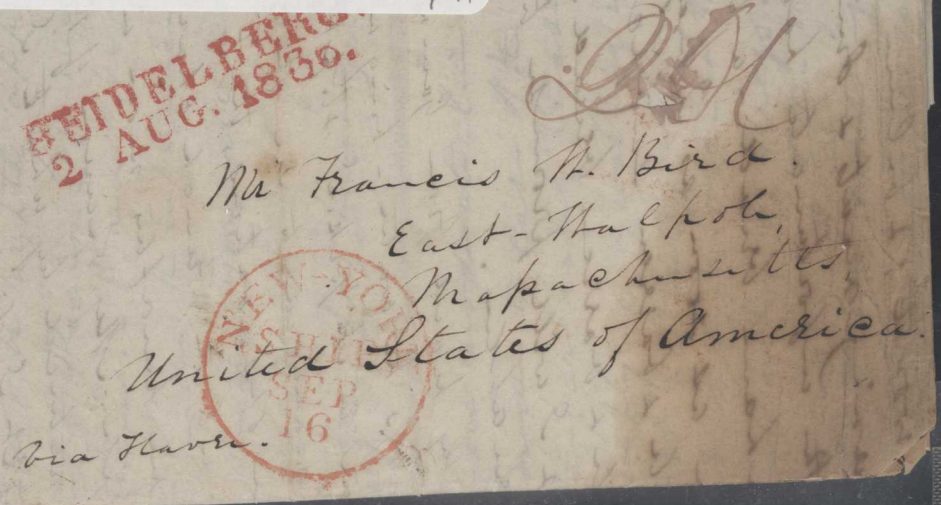 HEIDELBERG.
2 AUG. 1836.
Mr Francis W. Bird.
East-Walpole,
Massachusetts
United States of America.
via Havre.
NEW-YORK
SHIP
SEP
16